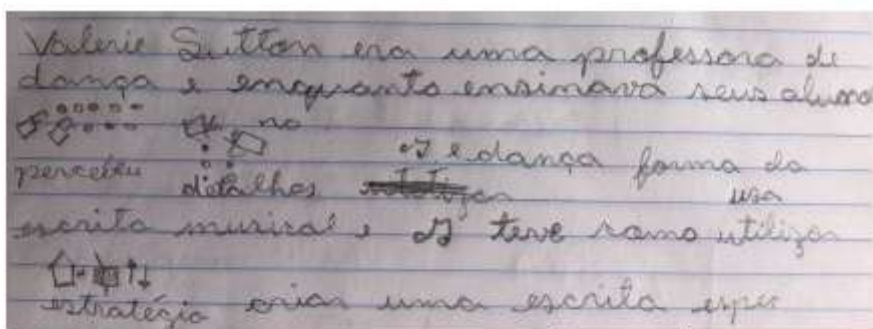 Valerie Sutton era uma professora de
dança e enquanto ensinava seus aluno
no
percebeu detalhes e dança forma da
usa
escrita musical e teve ramo utilizar
estratégia criar uma escrita espec